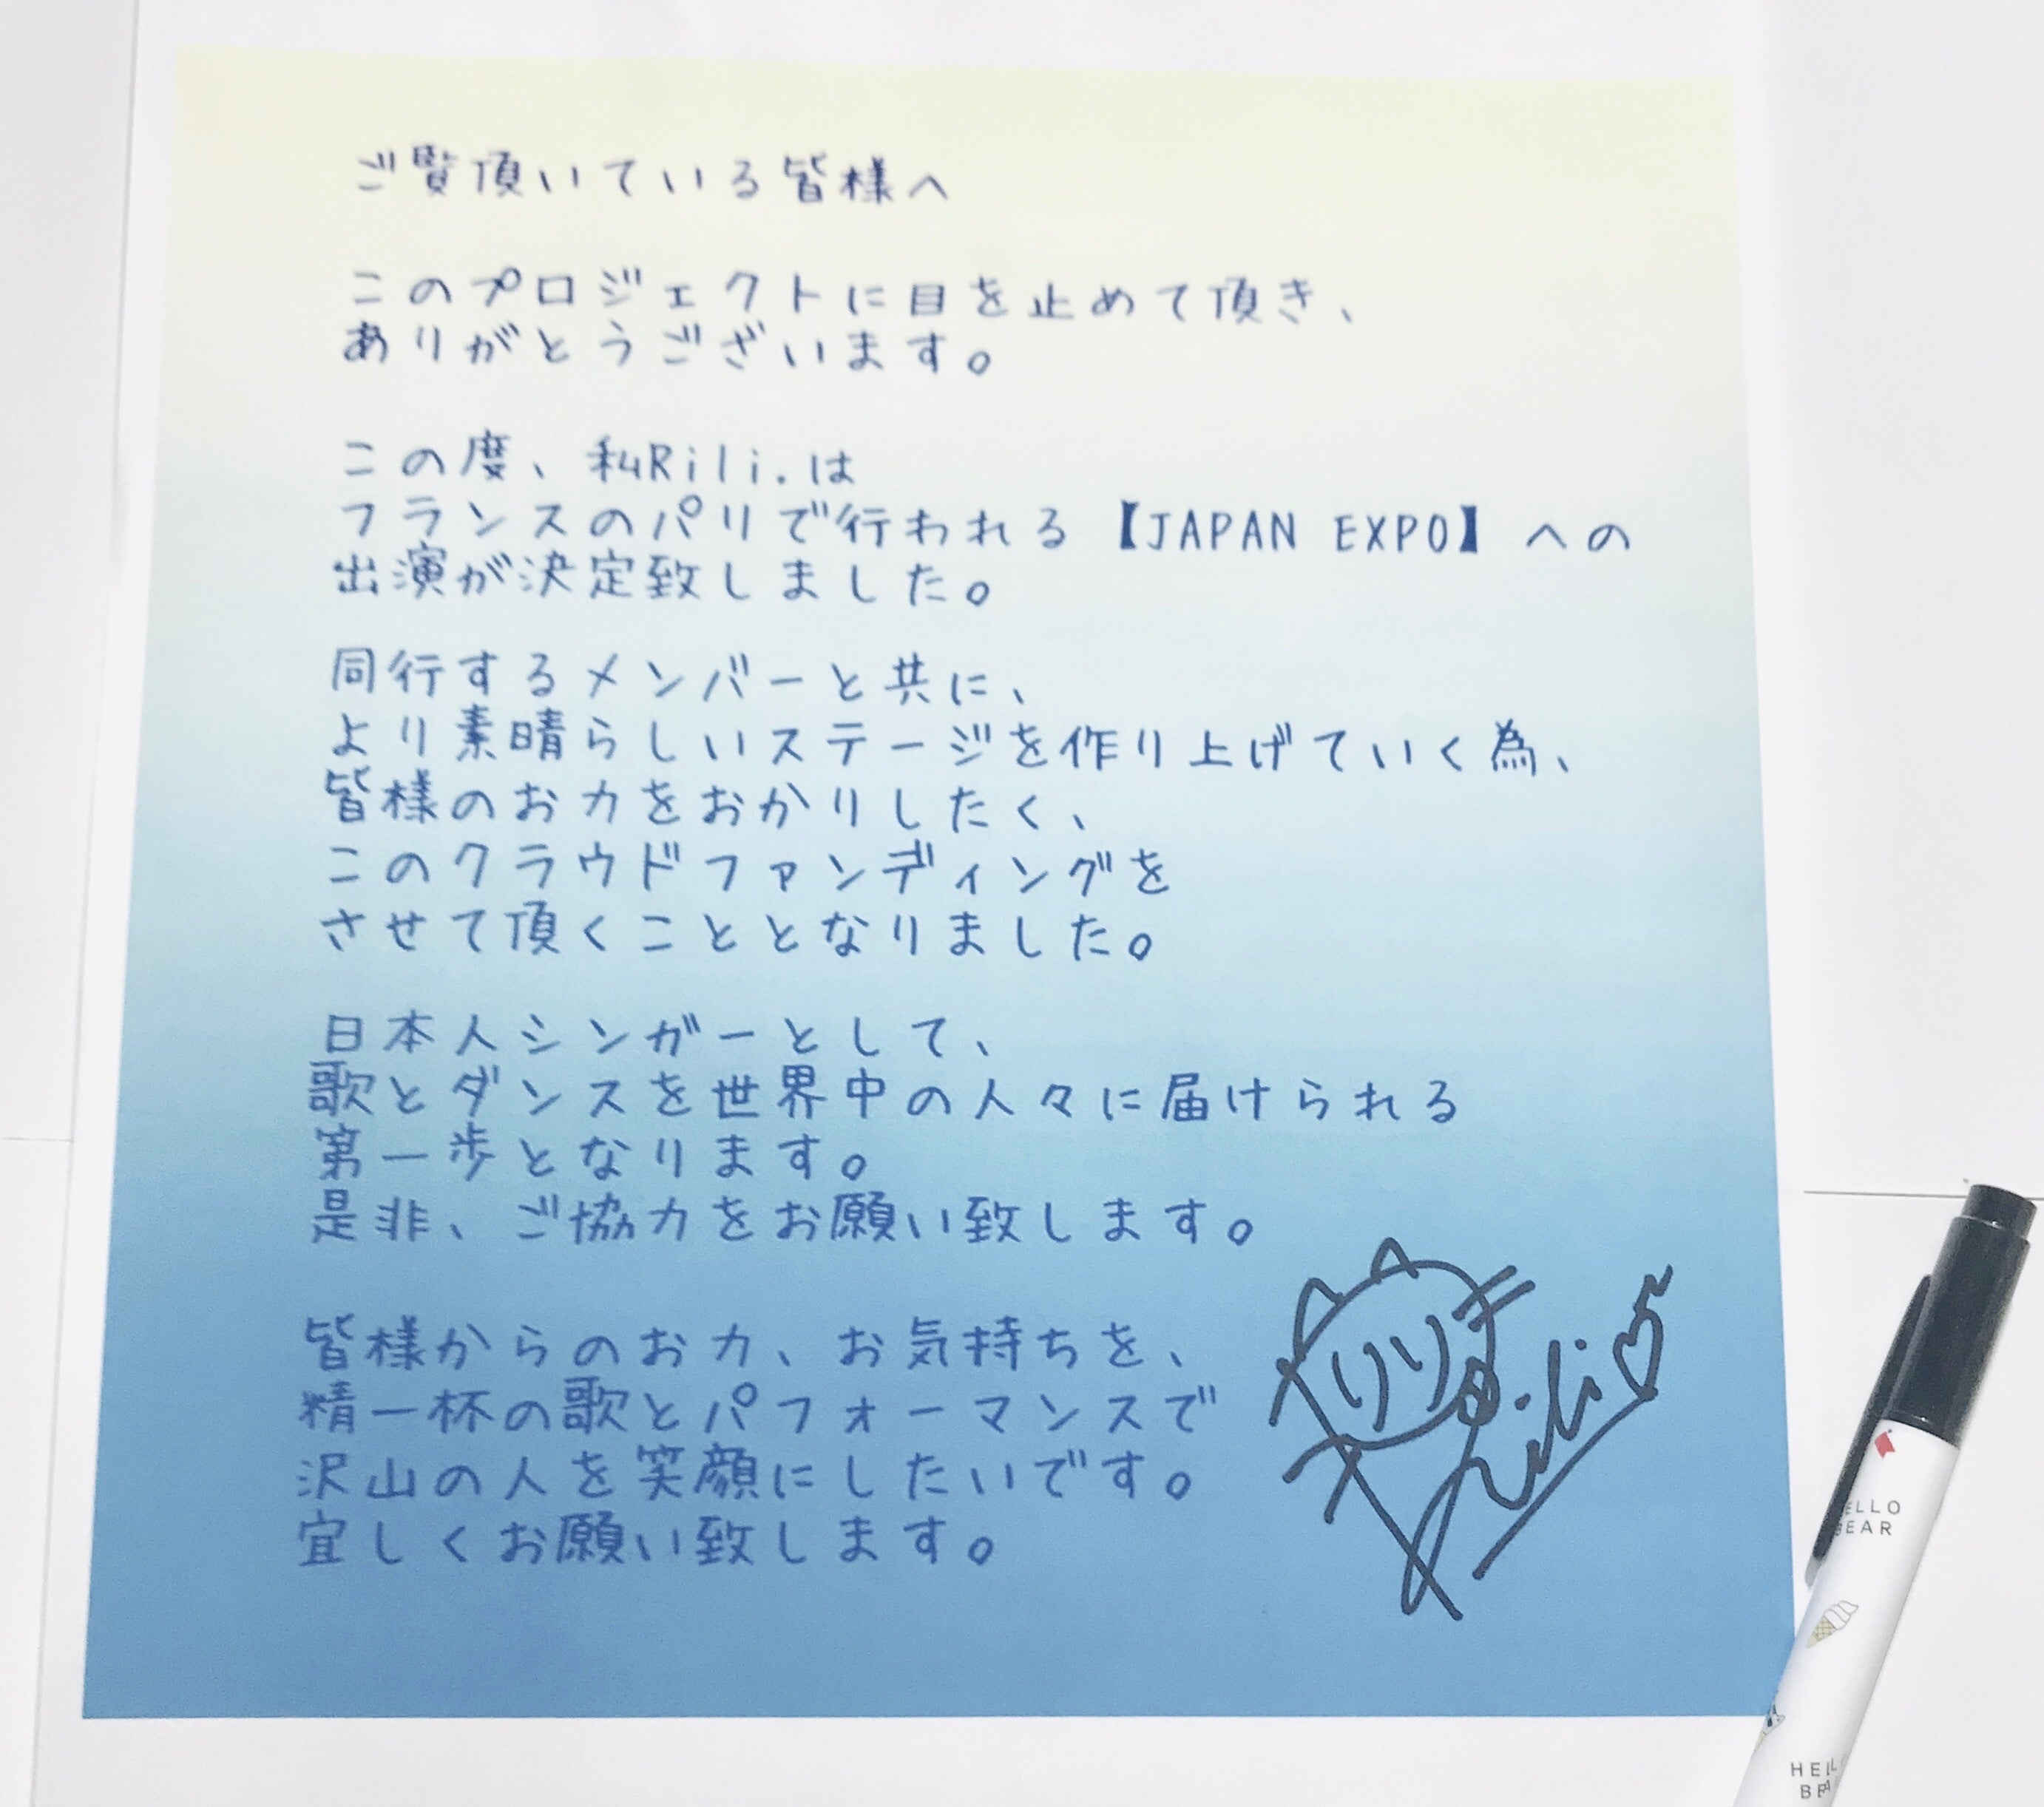 ご覧頂いている皆様へ
このプロジェクトに目を止めて頂き、
ありがとうございます。
この度、私Rili.は
フランスのパリで行われる【JAPAN EXPO】への
出演が決定致しました。
同行するメンバーと共に、
より素晴らしいステージを作り上げていく為、
皆様のお力をおかりしたく、
このクラウドファンディングを
させて頂くこととなりました。
日本人シンガーとして、
歌とダンスを世界中の人々に届けられる
第一歩となります。
是非、ご協力をお願い致します。
皆様からのお力、お気持ちを、
精一杯の歌とパフォーマンスで
沢山の人を笑顔にしたいです。
宜しくお願い致します。
リリ
Rili
ELLO
BEAR
HELL
BEA